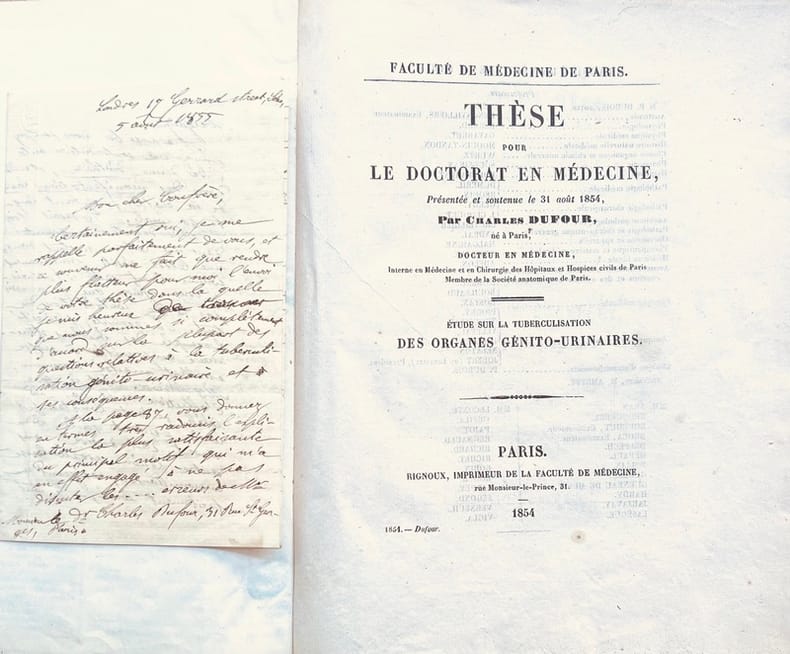 Londres 17 Gerrard street, Soho,
5 août 1855
Mon cher Confrère,
Certainement oui, je me
rappelle parfaitement de vous, et
ce souvenir ne fait que rendre
plus flatteur pour moi l'envoi
de votre thèse dans la quelle
je suis heureux de
que nous sommes si complètement
d'accord sur la plupart des
questions relatives à la tuberculi-
sation génito-urinaire et
ses conséquences.
A la page 37, vous donnez
en termes très radoucis l'expli-
cation la plus satisfaisante
du principal motif qui m'a
en effet engagé à ne pas
discuter les .... erreurs de Mr
Monsieur le Dr Charles Dufour, 31 Rue St Geor-
ges, Paris.
FACULTÉ DE MÉDECINE DE PARIS.
THÈSE
POUR
LE DOCTORAT EN MÉDECINE,
Présentée et soutenue le 31 août 1854,
Par CHARLES DUFOUR,
né à Paris,
DOCTEUR EN MÉDECINE,
Interne en Médecine et en Chirurgie des Hôpitaux et Hospices civils de Paris
Membre de la Société anatomique de Paris.
ÉTUDE SUR LA TUBERCULISATION
DES ORGANES GÉNITO-URINAIRES.
PARIS.
RIGNOUX, IMPRIMEUR DE LA FACULTÉ DE MÉDECINE,
rue Monsieur-le-Prince, 31.
1854
1854. — Dufour.